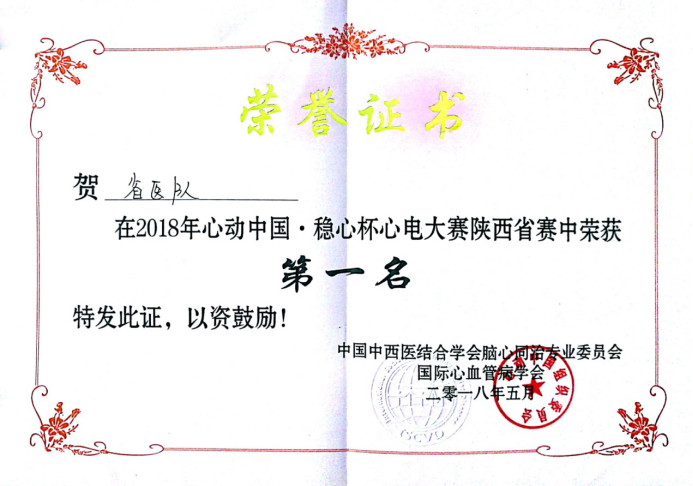 荣誉证书
贺 省医队
在2018年心动中国·稳心杯心电大赛陕西省赛中荣获
第一名
特发此证，以资鼓励！
中国中西医结合学会脑心同治专业委员会
国际心血管病学会
二零一八年五月
心动中国组织委员会
GCVD